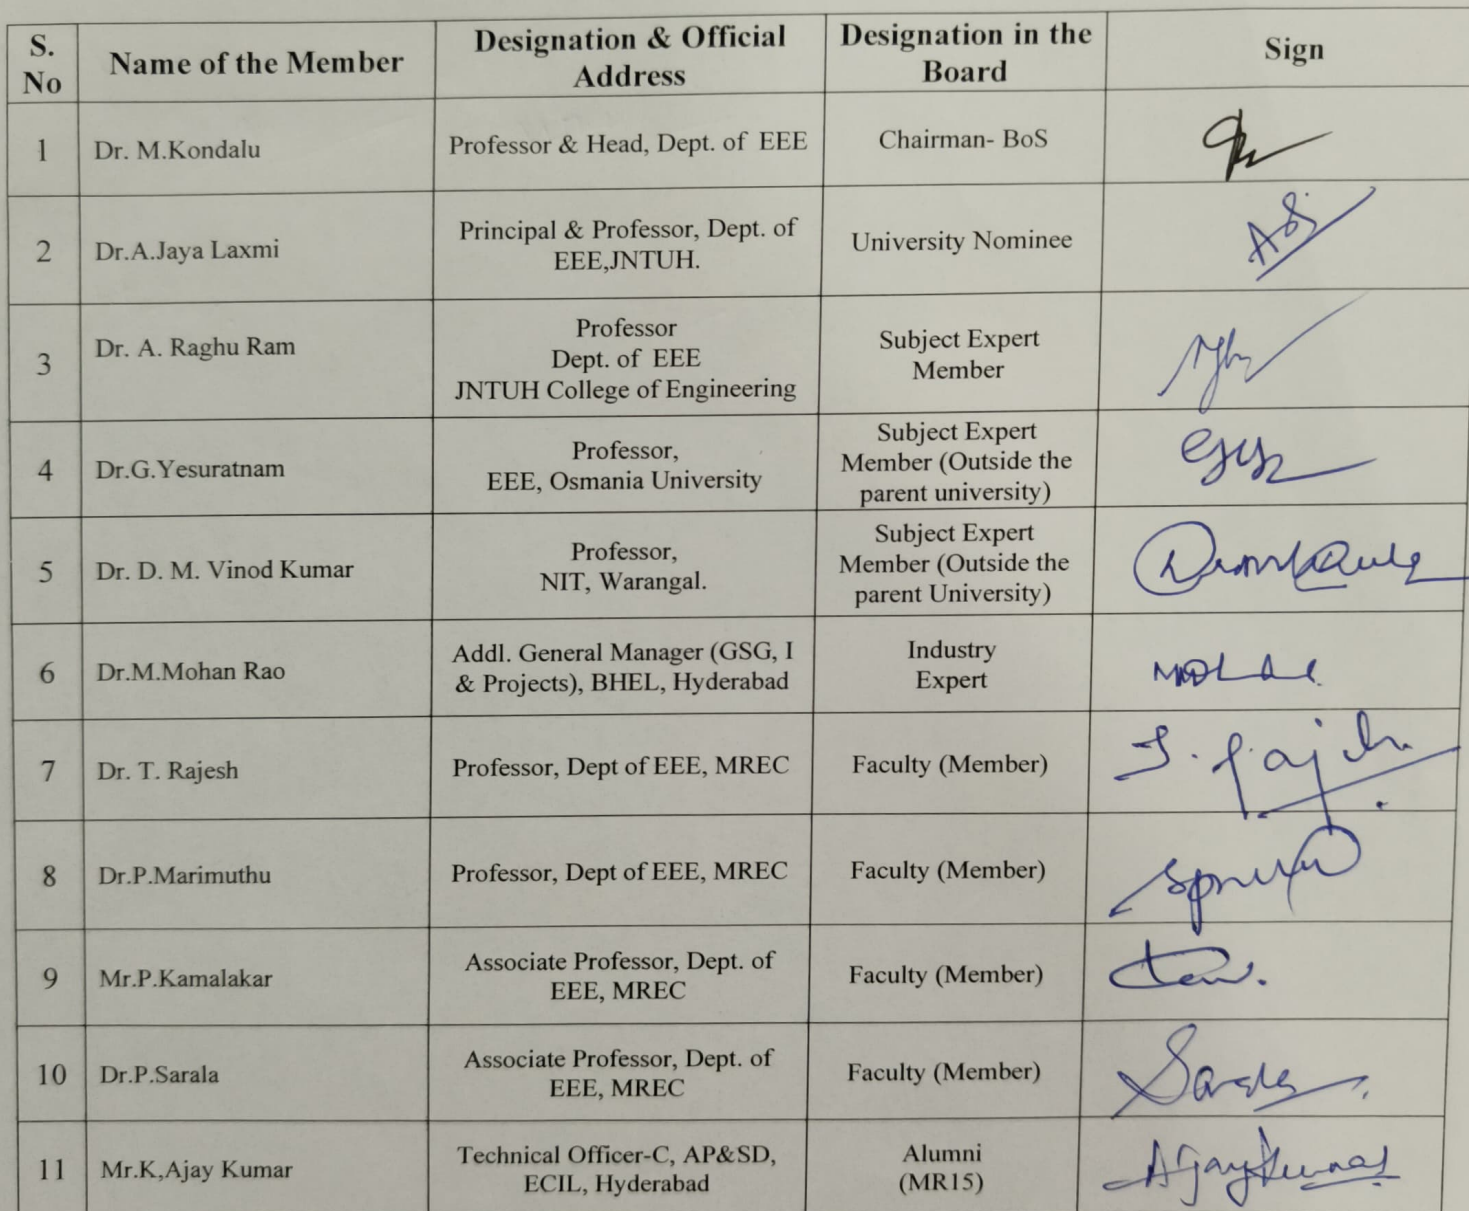 S. No | Name of the Member | Designation & Official Address | Designation in the Board | Sign
1 | Dr. M.Kondalu | Professor & Head, Dept. of EEE | Chairman- BoS
2 | Dr.A.Jaya Laxmi | Principal & Professor, Dept. of EEE,JNTUH. | University Nominee
3 | Dr. A. Raghu Ram | Professor Dept. of EEE JNTUH College of Engineering | Subject Expert Member
4 | Dr.G.Yesuratnam | Professor, EEE, Osmania University | Subject Expert Member (Outside the parent university)
5 | Dr. D. M. Vinod Kumar | Professor, NIT, Warangal. | Subject Expert Member (Outside the parent University)
6 | Dr.M.Mohan Rao | Addl. General Manager (GSG, I & Projects), BHEL, Hyderabad | Industry Expert
7 | Dr. T. Rajesh | Professor, Dept of EEE, MREC | Faculty (Member)
8 | Dr.P.Marimuthu | Professor, Dept of EEE, MREC | Faculty (Member)
9 | Mr.P.Kamalakar | Associate Professor, Dept. of EEE, MREC | Faculty (Member)
10 | Dr.P.Sarala | Associate Professor, Dept. of EEE, MREC | Faculty (Member)
11 | Mr.K,Ajay Kumar | Technical Officer-C, AP&SD, ECIL, Hyderabad | Alumni (MR15) | AjayKumar